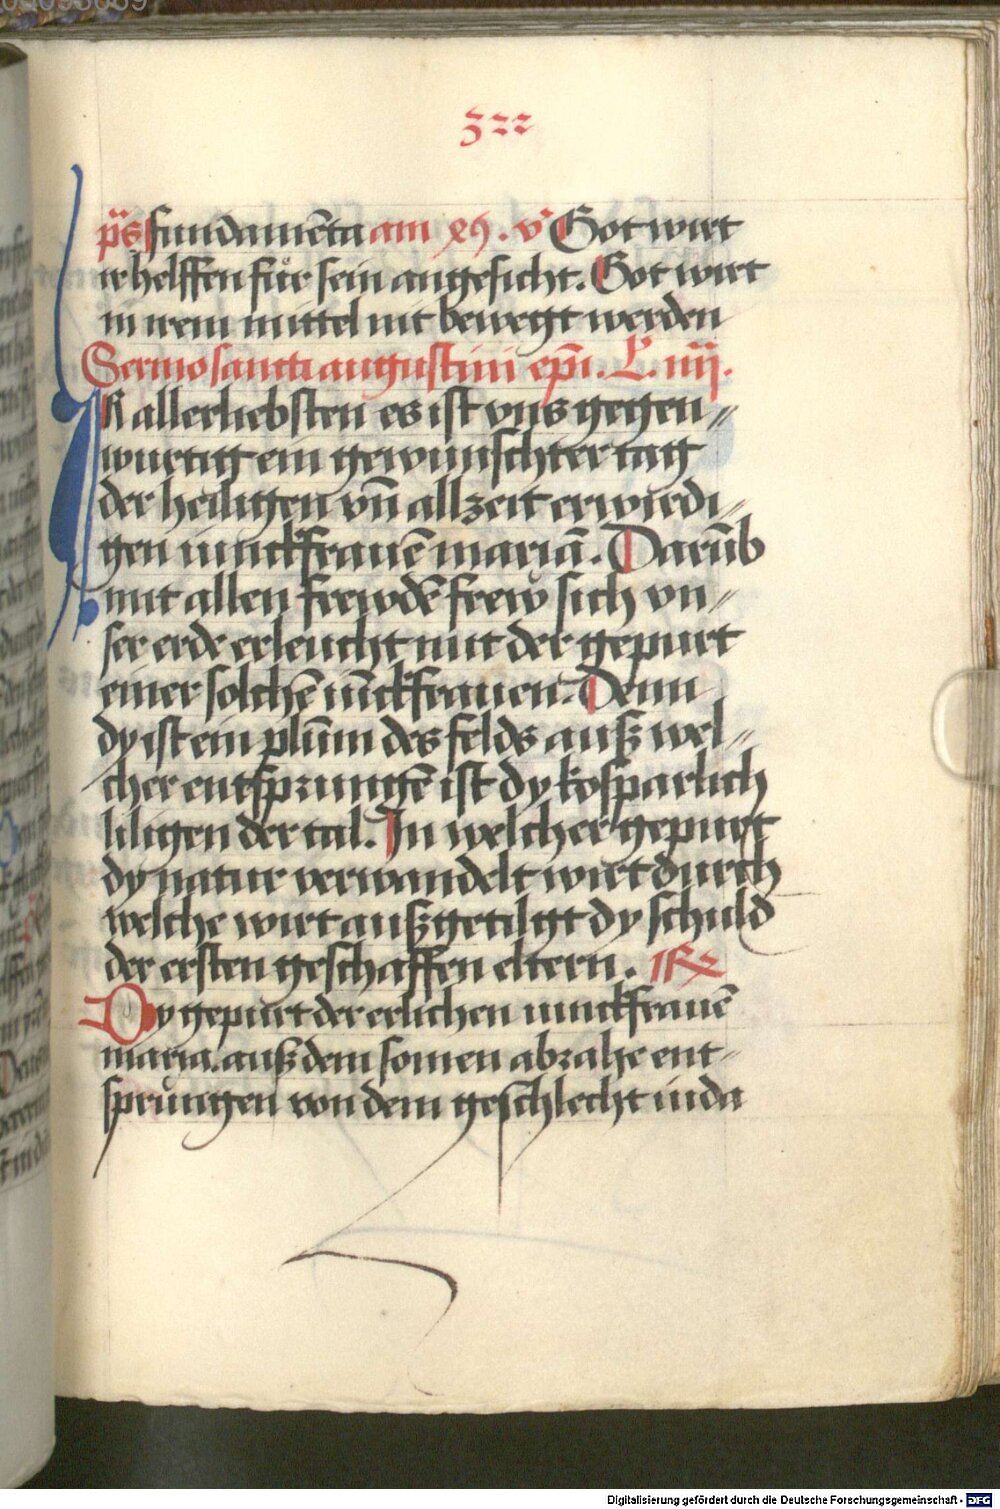 322
ps fundamēta am v Got wirt
ir helffen für sein angesicht. Got wirt
in irem mittel nit bewegt werden
Sermo sancti augustini epi. L. iiij.
Ir allerliebsten es ist vns gegen⸗
wurtig ein gewünschter tag
der heiligen vn̄ allzeit erwirdi⸗
gen iunckfrauē mariā. Darūb
mit allen frewdē frew sich vn⸗
ser erde erleucht mit der gepurt
einer solchē iūckfrauen. Denn
dy ist ein plūm des felds auß wel⸗
cher entsprungē ist dy kosparlich
liligen der tal. In welcher gepurt
dy natur verwandelt wirt durch
welche wirt außgetilgt dy schuld
der ersten geschaffen eltern.
Dy gepurt der erlichen iunckfrauē
maria. auß dem somen abrahe ent⸗
sprüngen von dem geschlecht iuda
Digitalisierung gefördert durch die Deutsche Forschungsgemeinschaft - DFG